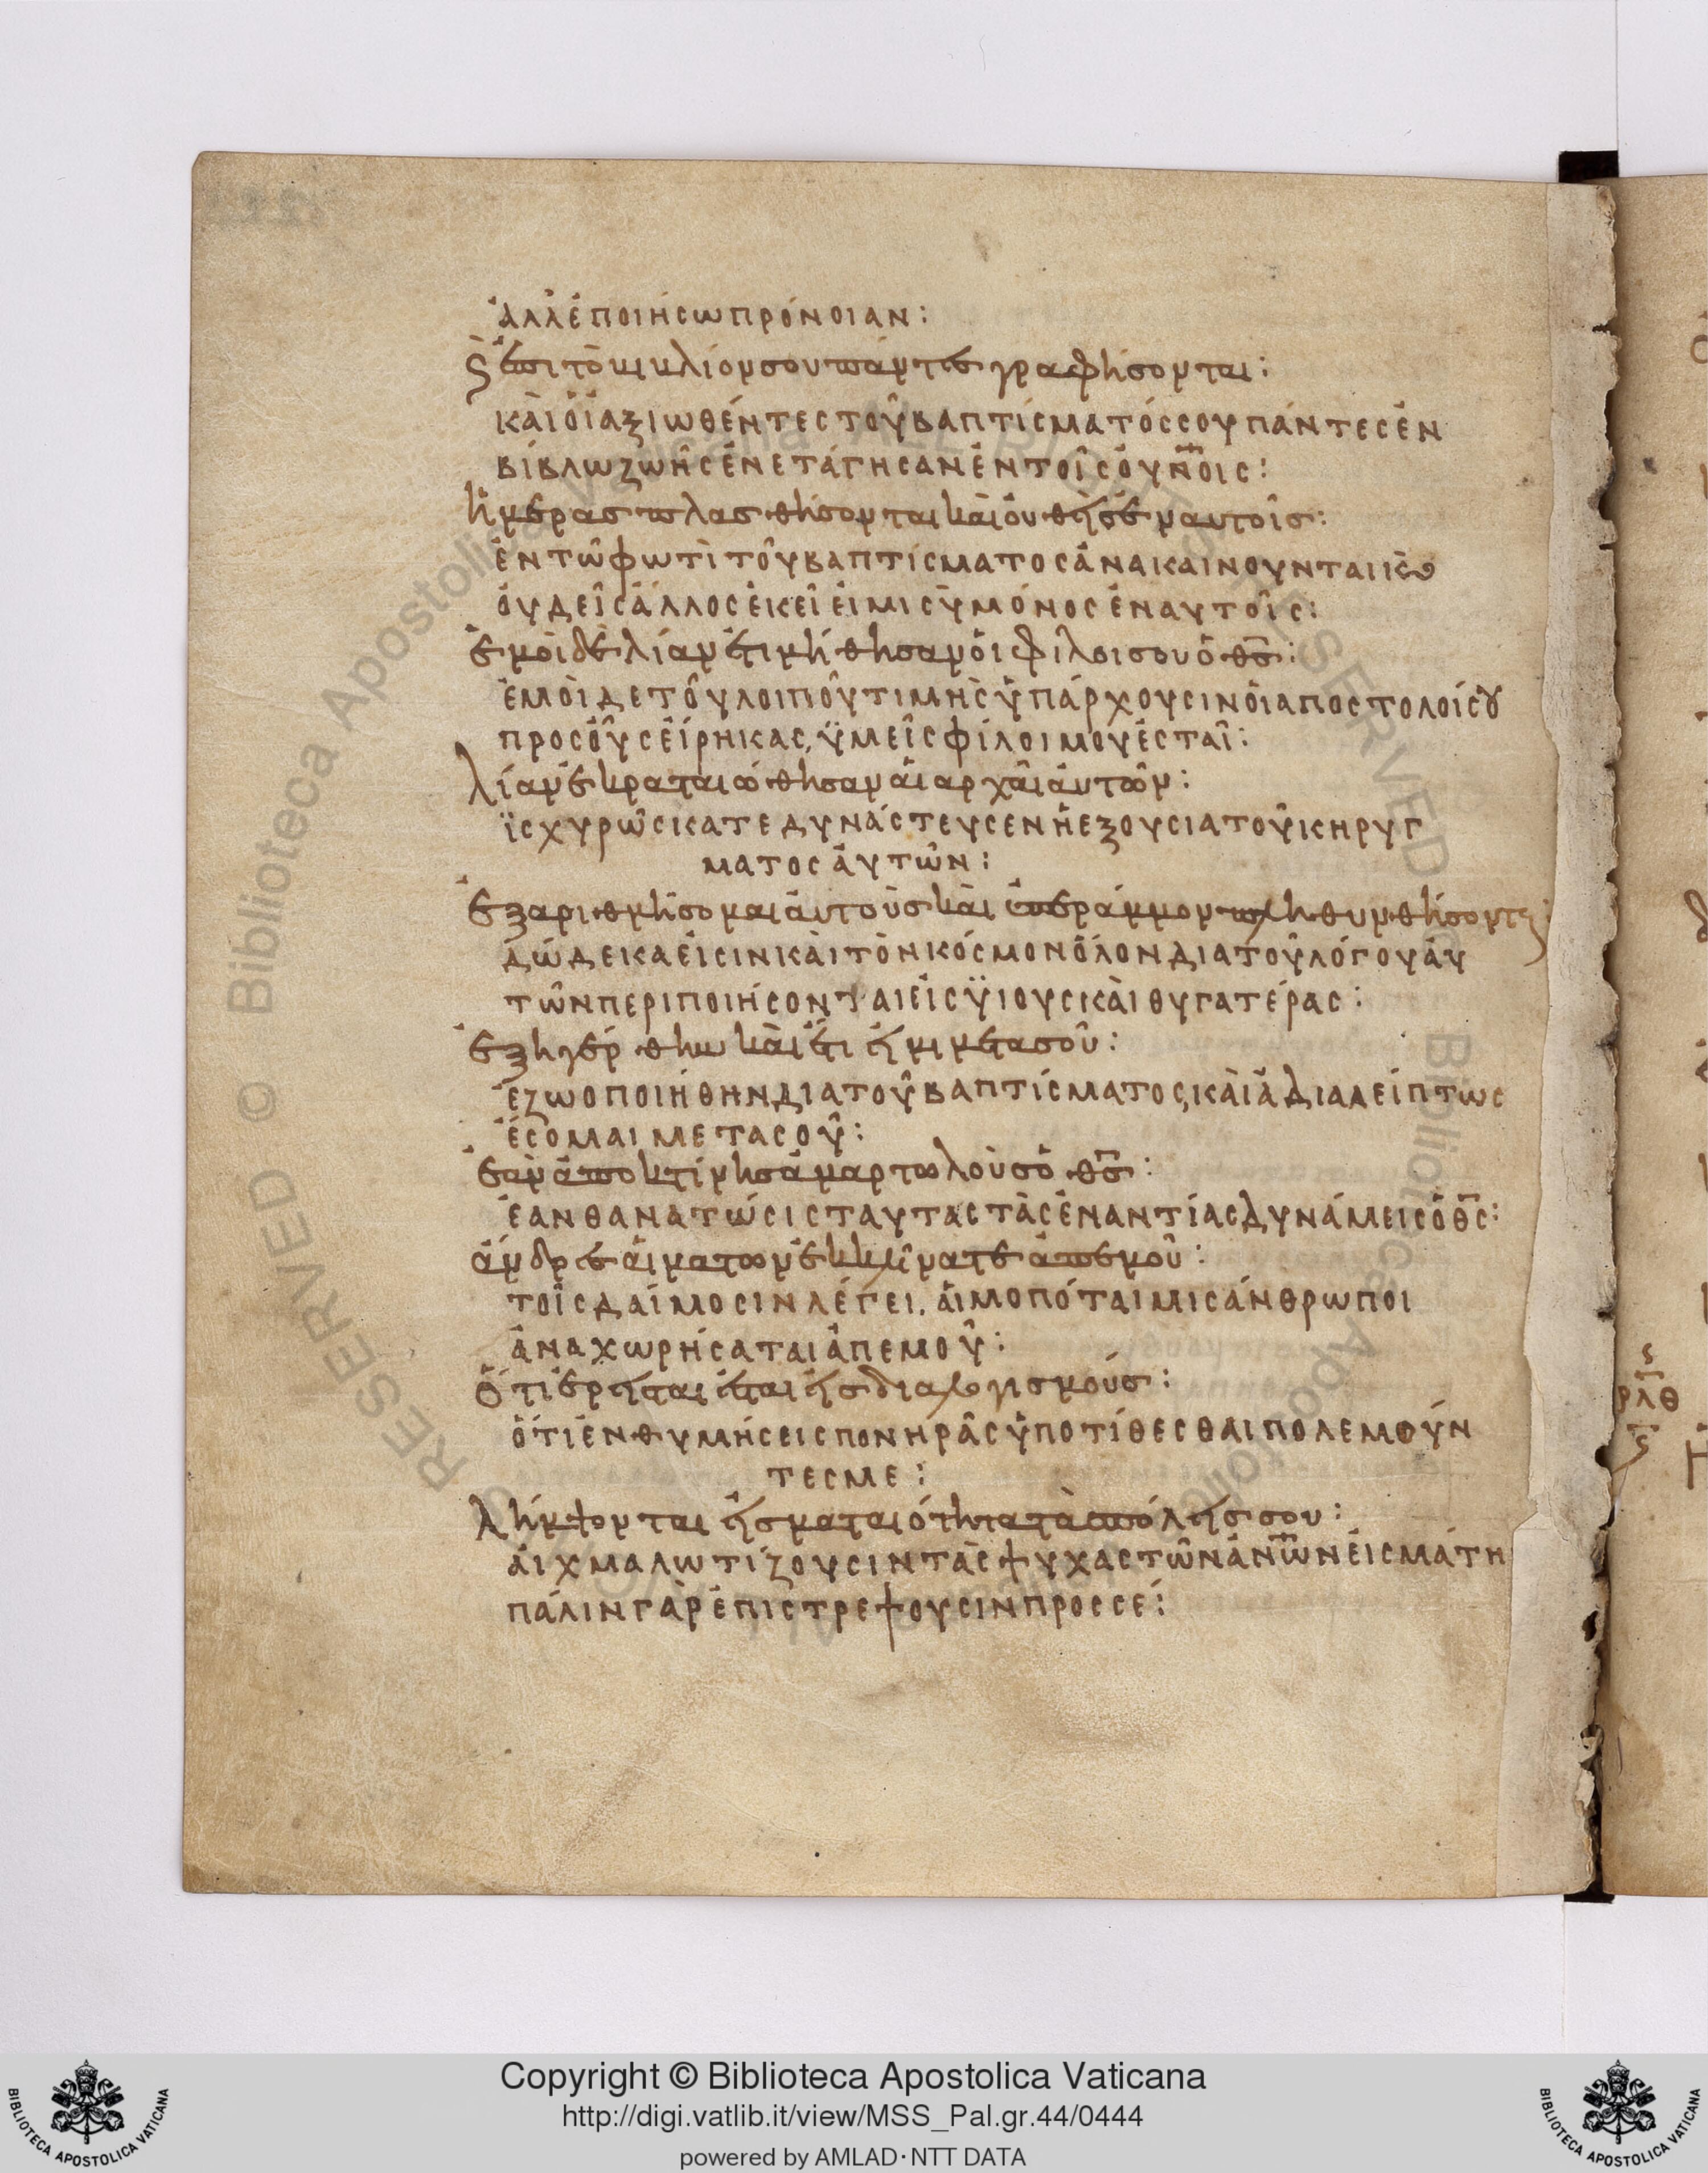 ἀλλ' ἐποιήσω πρόνοιαν:
ϛ ἐπὶ τὸ κικλίον σου πάντες γραφήσονται:
καὶ ὅι ἀξιωθέντες τοῦ βαπτίσματός σου πάντες ἐν
βίβλω ζωῆς ἐνετάγησαν ἐν τοῖς ὀυν̅οις:
ἡμέρας πλασθήσονται καὶ ὀυθὴς ἐν αυτοῖς:
ἐν τῶ φωτὶ τοῦ βαπτίσματος ἀνακαινουνται κὼ
ὀυδεῖς ἄλλος ἐκεῖ ἐιμι σὺ μόνος ἐν αυτοῖς:
ἐμοὶ δὲ λίαν ἐτιμήθησαν ὅι φίλοι σου ὁ θ̅ς̅:
ἐμοὶ δε τοῦ λοιποῦ τιμῆς ὑπάρχουσιν ὅι αποστολοί σου
προς ὅυς ἐίρηκας, ὑμεῖς φίλοι μου ἐσταῖ:
λίαν ἐκραταιώθησαν ἁι αρχᾶι ἀυτῶν:
ϊσχυρῶς κατεδυνάστευσεν ἡ εξουσια τοῦ κηρυγ
ματος ἀυτῶν:
ἐξαριθμήσομαι ἀυτοὺς καὶ ὑπερ άμμον πληθυνθήσονται:
δώδεκα ἐισιν καὶ τὸν κόσμον ὅλον δια τοῦ λόγου ἀυ
τῶν περιποιήσονται ἐις ϋιους καὶ θυγατέρας:
ἐξηγέρθην καὶ ἔτι ἠμι μετα σοῦ:
ἐζωοποιήθην δια τοῦ βαπτίσματος, καὶ ἀδιαλείπτως
ἔσομαι μετα σοῦ:
ἐαν ἀποκτίνης ἁμαρτωλοὺς ὁ θ̅ς̅:
ἐαν θανατώσις ταυτας τὰς ἐναντίας δυνάμεις ὁ θ̅ς̅:
ἄνδρες ἁιματων ἐκκλῖνατε ἀπ εμοῦ:
τοῖς δαίμοσιν λέγει. ἁιμοπόται μισάνθρωποι
ἀναχωρήσαται ἀπ εμοῦ:
ὅτι ἐρησται ἐται ἠς διαλογισμούς:
ὅτι ἐνθυμήσεις πονηρᾶς ὑποτίθεσθαι πολεμούν
τες με:
λήμψονται ἠς ματαιότητα τὰσ πόλης σου:
ἀιχμαλωτίζουσιν τὰς ψυχας τῶν ἀν̅ων ἐις μάτη
πάλιν γὰρ ἐπιστρεψουσιν προς σέ:
ρλθ
Copyright © Biblioteca Apostolica Vaticana
http://digi.vatlib.it/view/MSS_Pal.gr.44/0444
powered by AMLAD·NTT DATA
BIBLIOTECA APOSTOLICA VATICANA
BIBLIOTECA APOSTOLICA VATICANA